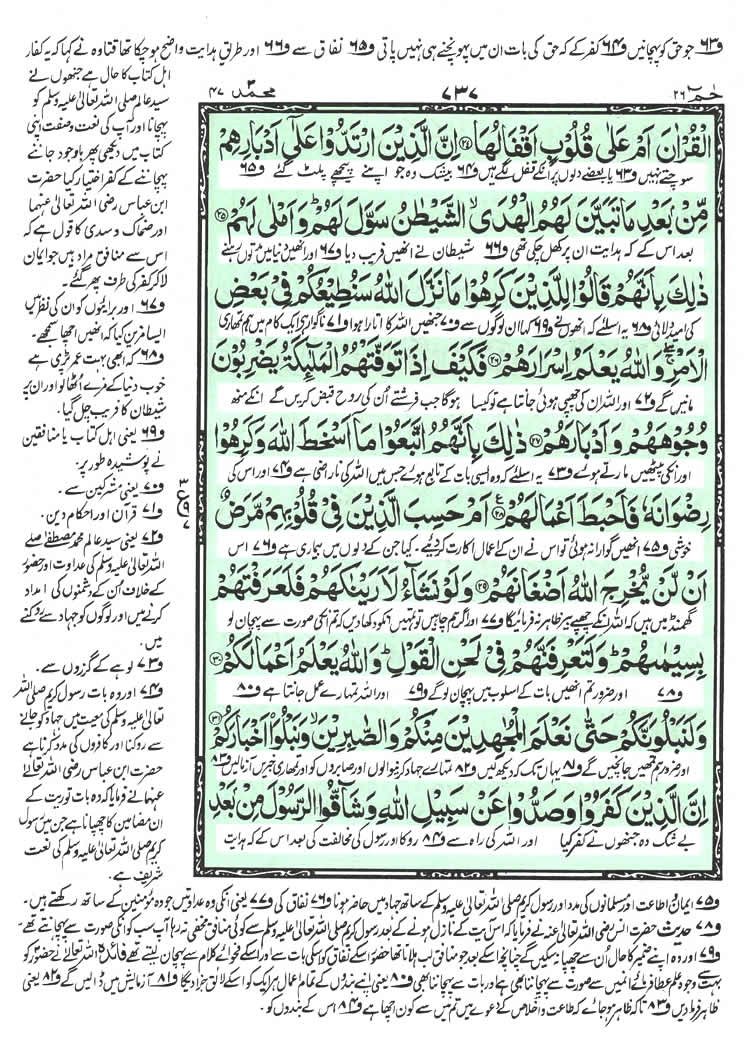 و۶۳ جو حق کو پہچانیں و۶۴ کفر کے کہ حق کی بات ان میں پہونچنے ہی نہیں پاتی و۶۵ نفاق سے و۶۶ اور طریق ہدایت واضح ہو چکا تھا قتادہ نے کہا کہ یہ کفار
حٰمٓ ۲۶
۷۳۷
محمد ۴۷
الْقُرْاٰنَ اَمْ عَلٰى قُلُوْبٍ اَقْفَالُهَا ﴿۲۴﴾ اِنَّ الَّذِيْنَ ارْتَدُّوْا عَلٰۤى اَدْبَارِهِمْ
سوچتے نہیں و۶۳ یا بعضے دلوں پر انکے قفل لگے ہیں و۶۴ بیشک وہ جو اپنے پیچھے پلٹ گئے و۶۵
مِّنْۢ بَعْدِ مَا تَبَيَّنَ لَهُمُ الْهُدَى ۙ الشَّيْطٰنُ سَوَّلَ لَهُمْ ؕ وَاَمْلٰى لَهُمْ ﴿۲۵﴾
بعد اس کے کہ ہدایت ان پر کھل چکی تھی و۶۶ شیطان نے انھیں فریب دیا و۶۷ اور انھیں دنیا میں مدتوں رہنے
ذٰلِكَ بِاَنَّهُمْ قَالُوْا لِلَّذِيْنَ كَرِهُوْا مَا نَزَّلَ اللّٰهُ سَنُطِيْعُكُمْ فِيْ بَعْضِ
کی امید دلائی و۶۸ یہ اسلئے کہ انھوں نے و۶۹ کہا ان لوگوں سے و۷۰ جنھیں اللہ کا اتارا ہوا و۷۱ ناگوار ہے ایک کام میں ہم تمھاری
الْاَمْرِ ۚ وَاللّٰهُ يَعْلَمُ اِسْرَارَهُمْ ﴿۲۶﴾ فَكَيْفَ اِذَا تَوَفَّتْهُمُ الْمَلٰٓئِكَةُ يَضْرِبُوْنَ
مانیں گے و۷۲ اور اللہ ان کی چھپی ہوئی جانتا ہے تو کیسا ہوگا جب فرشتے اُن کی روح قبض کریں گے انکے منھ
وُجُوْهَهُمْ وَاَدْبَارَهُمْ ﴿۲۷﴾ ذٰلِكَ بِاَنَّهُمُ اتَّبَعُوْا مَاۤ اَسْخَطَ اللّٰهَ وَكَرِهُوْا
اور انکی پیٹھیں مارتے ہوئے و۷۳ یہ اسلئے کہ وہ ایسی بات کے تابع ہوئے جس میں اللہ کی ناراضی ہے و۷۴ اور اس کی
رِضْوَانَهٗ فَاَحْبَطَ اَعْمَالَهُمْ ﴿۲۸﴾ اَمْ حَسِبَ الَّذِيْنَ فِيْ قُلُوْبِهِمْ مَّرَضٌ
خوشی و۷۵ انھیں گوارا نہ ہوئی تو اس نے ان کے اعمال اکارت کر دیئے۔ کیا جن کے دلوں میں بیماری ہے و۷۶ اس
اَنْ لَّنْ يُّخْرِجَ اللّٰهُ اَضْغَانَهُمْ ﴿۲۹﴾ وَلَوْ نَشَآءُ لَاَرَيْنٰكَهُمْ فَلَعَرَفْتَهُمْ
گھمنڈ میں ہیں کہ اللہ انکے چھپے بیر ظاہر نہ فرمائیگا و۷۷ اور اگر ہم چاہیں تو تمہیں انکو دکھا دیں کہ تم انکی صورت سے پہچان لو
بِسِيْمٰىهُمْ ؕ وَلَتَعْرِفَنَّهُمْ فِيْ لَحْنِ الْقَوْلِ ؕ وَاللّٰهُ يَعْلَمُ اَعْمَالَكُمْ ﴿۳۰﴾
و۷۸ اور ضرور تم انھیں بات کے اسلوب میں پہچان لو گے و۷۹ اور اللہ تمہارے عمل جانتا ہے و۸۰
وَلَنَبْلُوَنَّكُمْ حَتّٰى نَعْلَمَ الْمُجٰهِدِيْنَ مِنْكُمْ وَالصّٰبِرِيْنَ ۙ وَنَبْلُوَا۟ اَخْبَارَكُمْ ﴿۳۱﴾
اور ضرور ہم تمھیں جانچیں گے و۸۱ یہاں تک کہ دیکھ لیں و۸۲ تمہارے جہاد کرنیوالوں اور صابروں کو اور تمھاری خبریں آزمالیں و۸۳
اِنَّ الَّذِيْنَ كَفَرُوْا وَصَدُّوْا عَنْ سَبِيْلِ اللّٰهِ وَشَآقُّوا الرَّسُوْلَ مِنْۢ بَعْدِ
بے شک وہ جنھوں نے کفر کیا اور اللہ کی راہ سے و۸۴ روکا اور رسول کی مخالفت کی بعد اس کے کہ ہدایت
اہل کتاب کا حال ہے جنھوں نے
سید عالم صلی اللہ تعالیٰ علیہ وسلم کو
پہچانا اور آپ کی نعت و صفت اپنی
کتاب میں دیکھی پھر باوجود جاننے
پہچاننے کے کفر اختیار کیا حضرت
ابن عباس رضی اللہ تعالیٰ عنہما
اور ضحاک و سدی کا قول ہے کہ
اس سے منافق مراد ہیں جو ایمان
لاکر کفر کی طرف پھر گئے۔
و۶۷ اور برائیوں کو ان کی نظر میں
ایسا مزین کیا کہ انھیں اچھا سمجھے۔
و۶۸ کہ ابھی بہت عمر پڑی ہے
خوب دنیا کے مزے اُٹھا لو اور ان پر
شیطان کا فریب چل گیا۔
و۶۹ یعنی اہل کتاب یا منافقین
نے پوشیدہ طور پر۔
و۷۰ یعنی مشرکین سے۔
و۷۱ قرآن اور احکام دین۔
و۷۲ یعنی سید عالم محمد مصطفےٰ صلے
اللہ تعالیٰ علیہ وسلم کی عداوت اور حضور
کے خلاف اُن کے دشمنوں کی امداد
کرنے میں اور لوگوں کو جہاد سے روکنے
میں۔
و۷۳ لوہے کے گرزوں سے۔
و۷۴ اور وہ بات رسول کریم صلی اللہ
تعالیٰ علیہ وسلم کی معیت میں جہاد کو جانے
سے روکنا اور کافروں کی مدد کرنا ہے
حضرت ابن عباس رضی اللہ تعالےٰ
عنہما نے فرمایا کہ وہ بات توریت کے
ان مضامین کا چھپانا ہے جن میں رسول
کریم صلی اللہ تعالیٰ علیہ وسلم کی نعت
شریف ہے۔
و۷۵ ایمان و اطاعت اور مسلمانوں کی مدد اور رسول کریم صلی اللہ تعالیٰ علیہ وسلم کے ساتھ جہاد میں حاضر ہونا و۷۶ نفاق کی و۷۷ یعنی انکی وہ عداوتیں جو وہ مؤمنین کے ساتھ رکھتے ہیں۔
و۷۸ حدیث حضرت انس رضی اللہ تعالیٰ عنہ نے فرمایا کہ اس آیت کے نازل ہونے کے بعد رسول کریم صلی اللہ تعالیٰ علیہ وسلم سے کوئی منافق مخفی نہ رہا آپ سب کو انکی صورت سے پہچانتے تھے۔
و۷۹ اور وہ اپنے ضمیر کا حال اُن سے چھپا نہ سکیں گے چنانچہ اسکے بعد جو منافق لب ہلاتا تھا حضور اسکے نفاق کو اسکی بات سے اور اسکے فحوائے کلام سے پہچان لیتے تھے فائدہ اللہ تعالےٰ نے حضور کو
بہت سے وجوہ علم عطا فرمائے انمیں سے صورت سے پہچاننا بھی ہے اور بات سے پہچاننا بھی و۸۰ یعنی اپنے بندوں کے تمام اعمال ہر ایک کو اسکے لائق جزا دیگا و۸۱ آزمایش میں ڈالیں گے و۸۲ یعنی
ظاہر فرمادیں و۸۳ تاکہ ظاہر ہو جائے کہ طاعت و اخلاص کے دعوے میں تم میں سے کون اچھا ہے و۸۴ اس کے بندوں کو۔